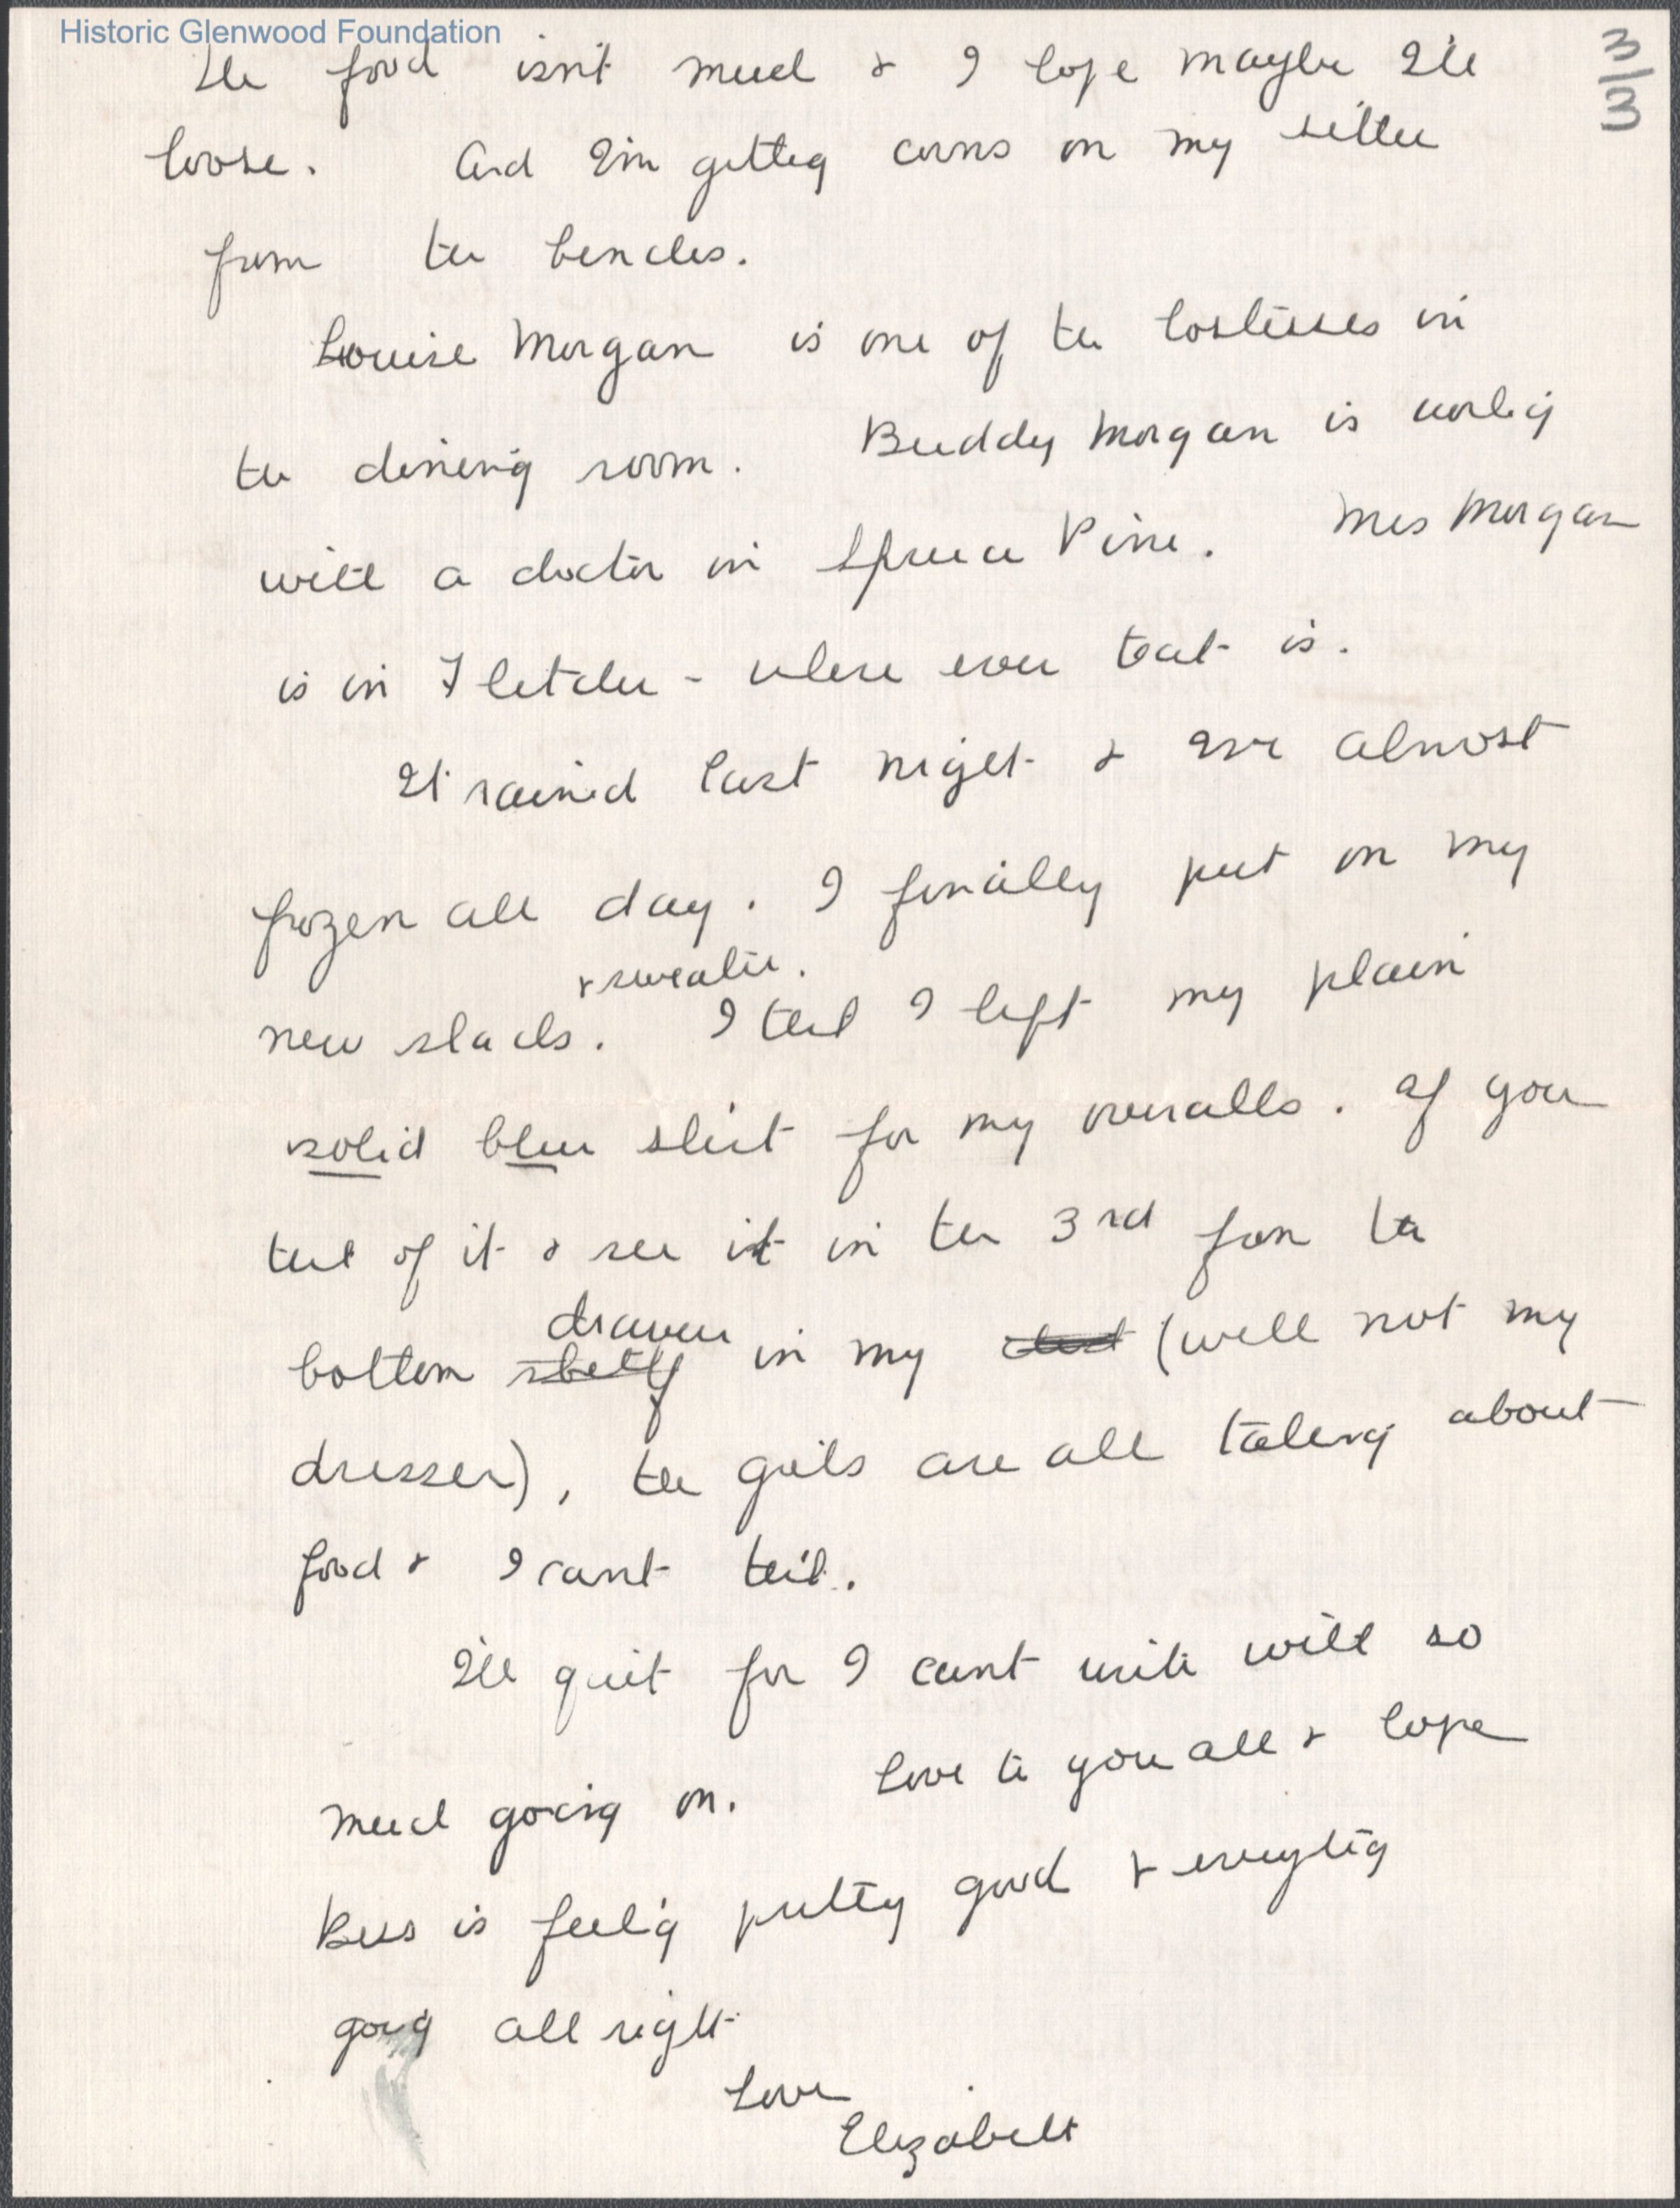 Historic Glenwood Foundation
3/3
The food isn't much & I hope maybe I'll
loose. And I'm getting corns on my sitter
from the benches.
Louise Morgan is one of the hostesses in
the dining room. Buddy Morgan is working
with a doctor in Spruce Pine. Mrs Morgan
is in Fletcher - where ever that is.
It rained last night & I've almost
frozen all day. I finally put on my
& sweater.
new slacks. I think I left my plain
solid blue shirt for my overalls. If you
think of it & see it in the 3rd from the
drawer
bottom shelf in my chest (well not my
dresser), the girls are all talking about
food & I can't think.
I'll quit for I can't write with so
much going on. Love to you all & hope
Bess is feeling pretty good & everything
going all right
Love
Elizabeth